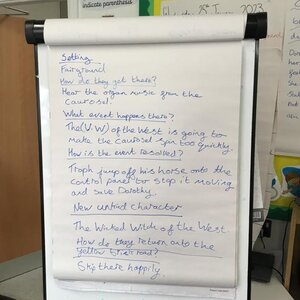 indicate parenthesis
2023
Setting
Fairground
How did they get there?
Hear the organ music from the
Caurosel.
What event happens there?
The (V.W) of the West is going to
make the Caurosel spin too quickly.
How is the event resolved?
jump off his horse onto the
control panel to stop it moving
and save Dorothy.
New untied character
The Wicked Witch of the West.
How do they return onto the
yellow brick road?
Skip there happily.